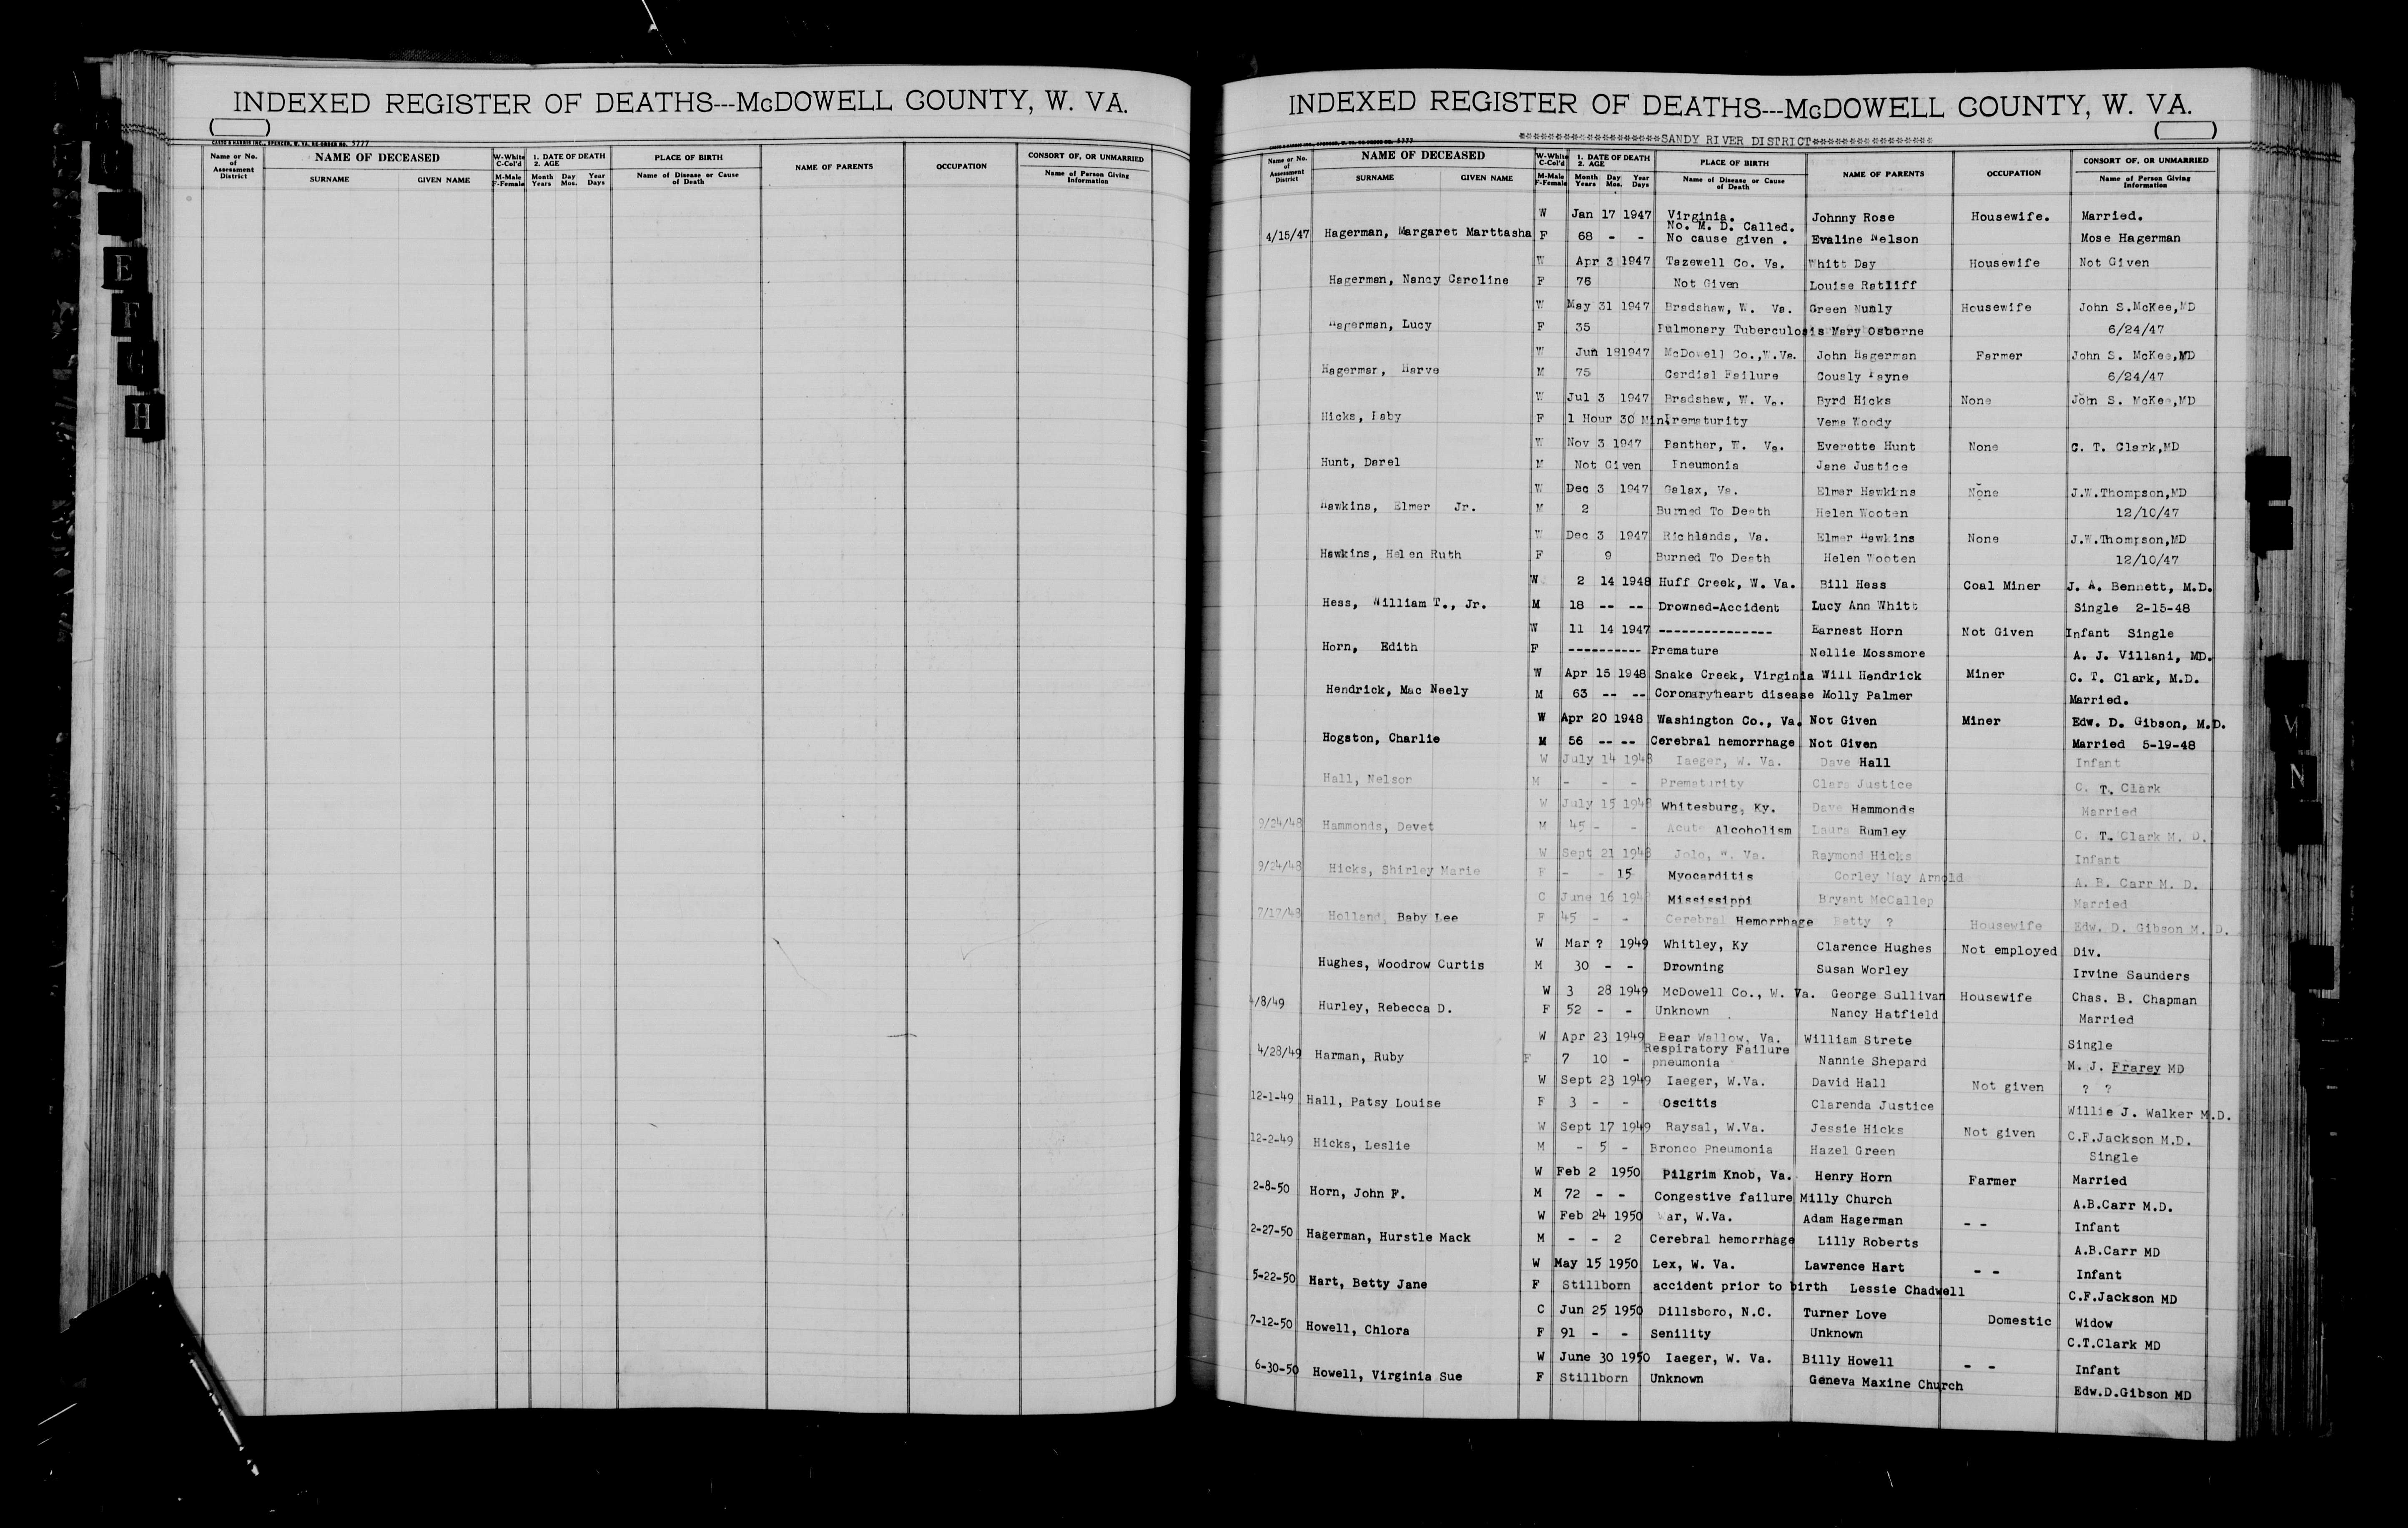 INDEXED REGISTER OF DEATHS---McDOWELL COUNTY, W. VA.
CASTO & HARRIS INC., SPENCER, W. VA. RE-ORDER NO. 5777
Name or No. of Assessment District NAME OF DECEASED SURNAME GIVEN NAME W-White C-Col'd M-Male F-Female 1. DATE OF DEATH 2. AGE Month Day Year Years Mos. Days PLACE OF BIRTH Name of Disease or Cause of Death NAME OF PARENTS OCCUPATION CONSORT OF, OR UNMARRIED Name of Person Giving Information
E
F
G
H
INDEXED REGISTER OF DEATHS---McDOWELL COUNTY, W. VA.
******************SANDY RIVER DISTRICT****************
Name or No. of Assessment District NAME OF DECEASED SURNAME GIVEN NAME W-White C-Col'd M-Male F-Female 1. DATE OF DEATH 2. AGE Month Day Year Years Mos. Days PLACE OF BIRTH Name of Disease or Cause of Death NAME OF PARENTS OCCUPATION CONSORT OF, OR UNMARRIED Name of Person Giving Information
W Jan 17 1947 Virginia. Johnny Rose Housewife. Married.
No. M. D. Called.
4/15/47 Hagerman, Margaret Marttasha F 68 - - No cause given . Evaline Nelson Mose Hagerman
W Apr 3 1947 Tazewell Co. Va. Whitt Day Housewife Not Given
Hagerman, Nancy Caroline F 76 Not Given Louise Ratliff
W May 31 1947 Bradshaw, W. Va. Green Munly Housewife John S.McKee,MD
Hagerman, Lucy F 35 Pulmonary Tuberculosis Mary Osborne 6/24/47
W Jun 181947 McDowell Co.,W.Va. John Hagerman Farmer John S. McKee,MD
Hagerman, Harve M 75 Cardial Failure Cously Payne 6/24/47
W Jul 3 1947 Bradshaw, W. Va. Byrd Hicks None John S. McKee,MD
Hicks, Baby F 1 Hour 30 Min. Prematurity Vema Woody
W Nov 3 1947 Panther, W. Va. Everette Hunt None C. T. Clark,MD
Hunt, Darel M Not Given Pneumonia Jane Justice
W Dec 3 1947 Galax, Va. Elmer Hawkins None J.W.Thompson,MD
Hawkins, Elmer Jr. M 2 Burned To Death Helen Wooten 12/10/47
W Dec 3 1947 Richlands, Va. Elmer Hawkins None J.W.Thompson,MD
Hawkins, Helen Ruth F 9 Burned To Death Helen Wooten 12/10/47
W 2 14 1948 Huff Creek, W. Va. Bill Hess Coal Miner J. A. Bennett, M.D.
Hess, William T., Jr. M 18 -- -- Drowned-Accident Lucy Ann Whitt Single 2-15-48
W 11 14 1947 --------------- Earnest Horn Not Given Infant Single
Horn, Edith F ---------- Premature Nellie Mossmore A. J. Villani, MD.
W Apr 15 1948 Snake Creek, Virginia Will Hendrick Miner C. T. Clark, M.D.
Hendrick, Mac Neely M 63 -- -- Coronaryheart disease Molly Palmer Married.
W Apr 20 1948 Washington Co., Va. Not Given Miner Edw. D. Gibson, M.D.
Hogston, Charlie M 56 -- -- Cerebral hemorrhage Not Given Married 5-19-48
W July 14 1948 Iaeger, W. Va. Dave Hall Infant
Hall, Nelson M - - - Prematurity Clara Justice C. T. Clark
W July 15 1948 Whitesburg, Ky. Dave Hammonds Married
9/24/48 Hammonds, Devet M 45 - - Acute Alcoholism Laura Rumley C. T. Clark M. D.
W Sept 21 1948 Jolo, W. Va. Raymond Hicks Infant
9/24/48 Hicks, Shirley Marie F - - 15 Myocarditis Corley May Arnold A. B. Carr M. D.
C June 16 194 Mississippi Bryant McCallep Married
7/17/48 Holland, Baby Lee F 45 - - Cerebral Hemorrhage Betty ? Housewife Edw. D. Gibson M. D.
W Mar ? 1949 Whitley, Ky Clarence Hughes Not employed Div.
Hughes, Woodrow Curtis M 30 - - Drowning Susan Worley Irvine Saunders
W 3 28 1949 McDowell Co., W. Va. George Sullivan Housewife Chas. B. Chapman
4/8/49 Hurley, Rebecca D. F 52 - - Unknown Nancy Hatfield Married
W Apr 23 1949 Bear Wallow, Va. William Strete Single
Respiratory Failure
4/28/49 Harman, Ruby F 7 10 - pneumonia Nannie Shepard M. J. Frarey MD
W Sept 23 1949 Iaeger, W.Va. David Hall Not given ? ?
12-1-49 Hall, Patsy Louise F 3 - - Oscitis Clarenda Justice Willie J. Walker M.D.
W Sept 17 1949 Raysal, W.Va. Jessie Hicks Not given C.F.Jackson M.D.
12-2-49 Hicks, Leslie M - 5 - Bronco Pneumonia Hazel Green Single
W Feb 2 1950 Pilgrim Knob, Va. Henry Horn Farmer Married
2-8-50 Horn, John F. M 72 - - Congestive failure Milly Church A.B.Carr M.D.
W Feb 24 1950 War, W.Va. Adam Hagerman - - Infant
2-27-50 Hagerman, Hurstle Mack M - - 2 Cerebral hemorrhage Lilly Roberts A.B.Carr MD
W May 15 1950 Lex, W. Va. Lawrence Hart - - Infant
5-22-50 Hart, Betty Jane F Stillborn accident prior to birth Lessie Chadwell C.F.Jackson MD
C Jun 25 1950 Dillsboro, N.C. Turner Love Domestic Widow
7-12-50 Howell, Chlora F 91 - - Senility Unknown C.T.Clark MD
W June 30 1950 Iaeger, W. Va. Billy Howell - - Infant
6-30-50 Howell, Virginia Sue F Stillborn Unknown Geneva Maxine Church Edw.D.Gibson MD
M
N